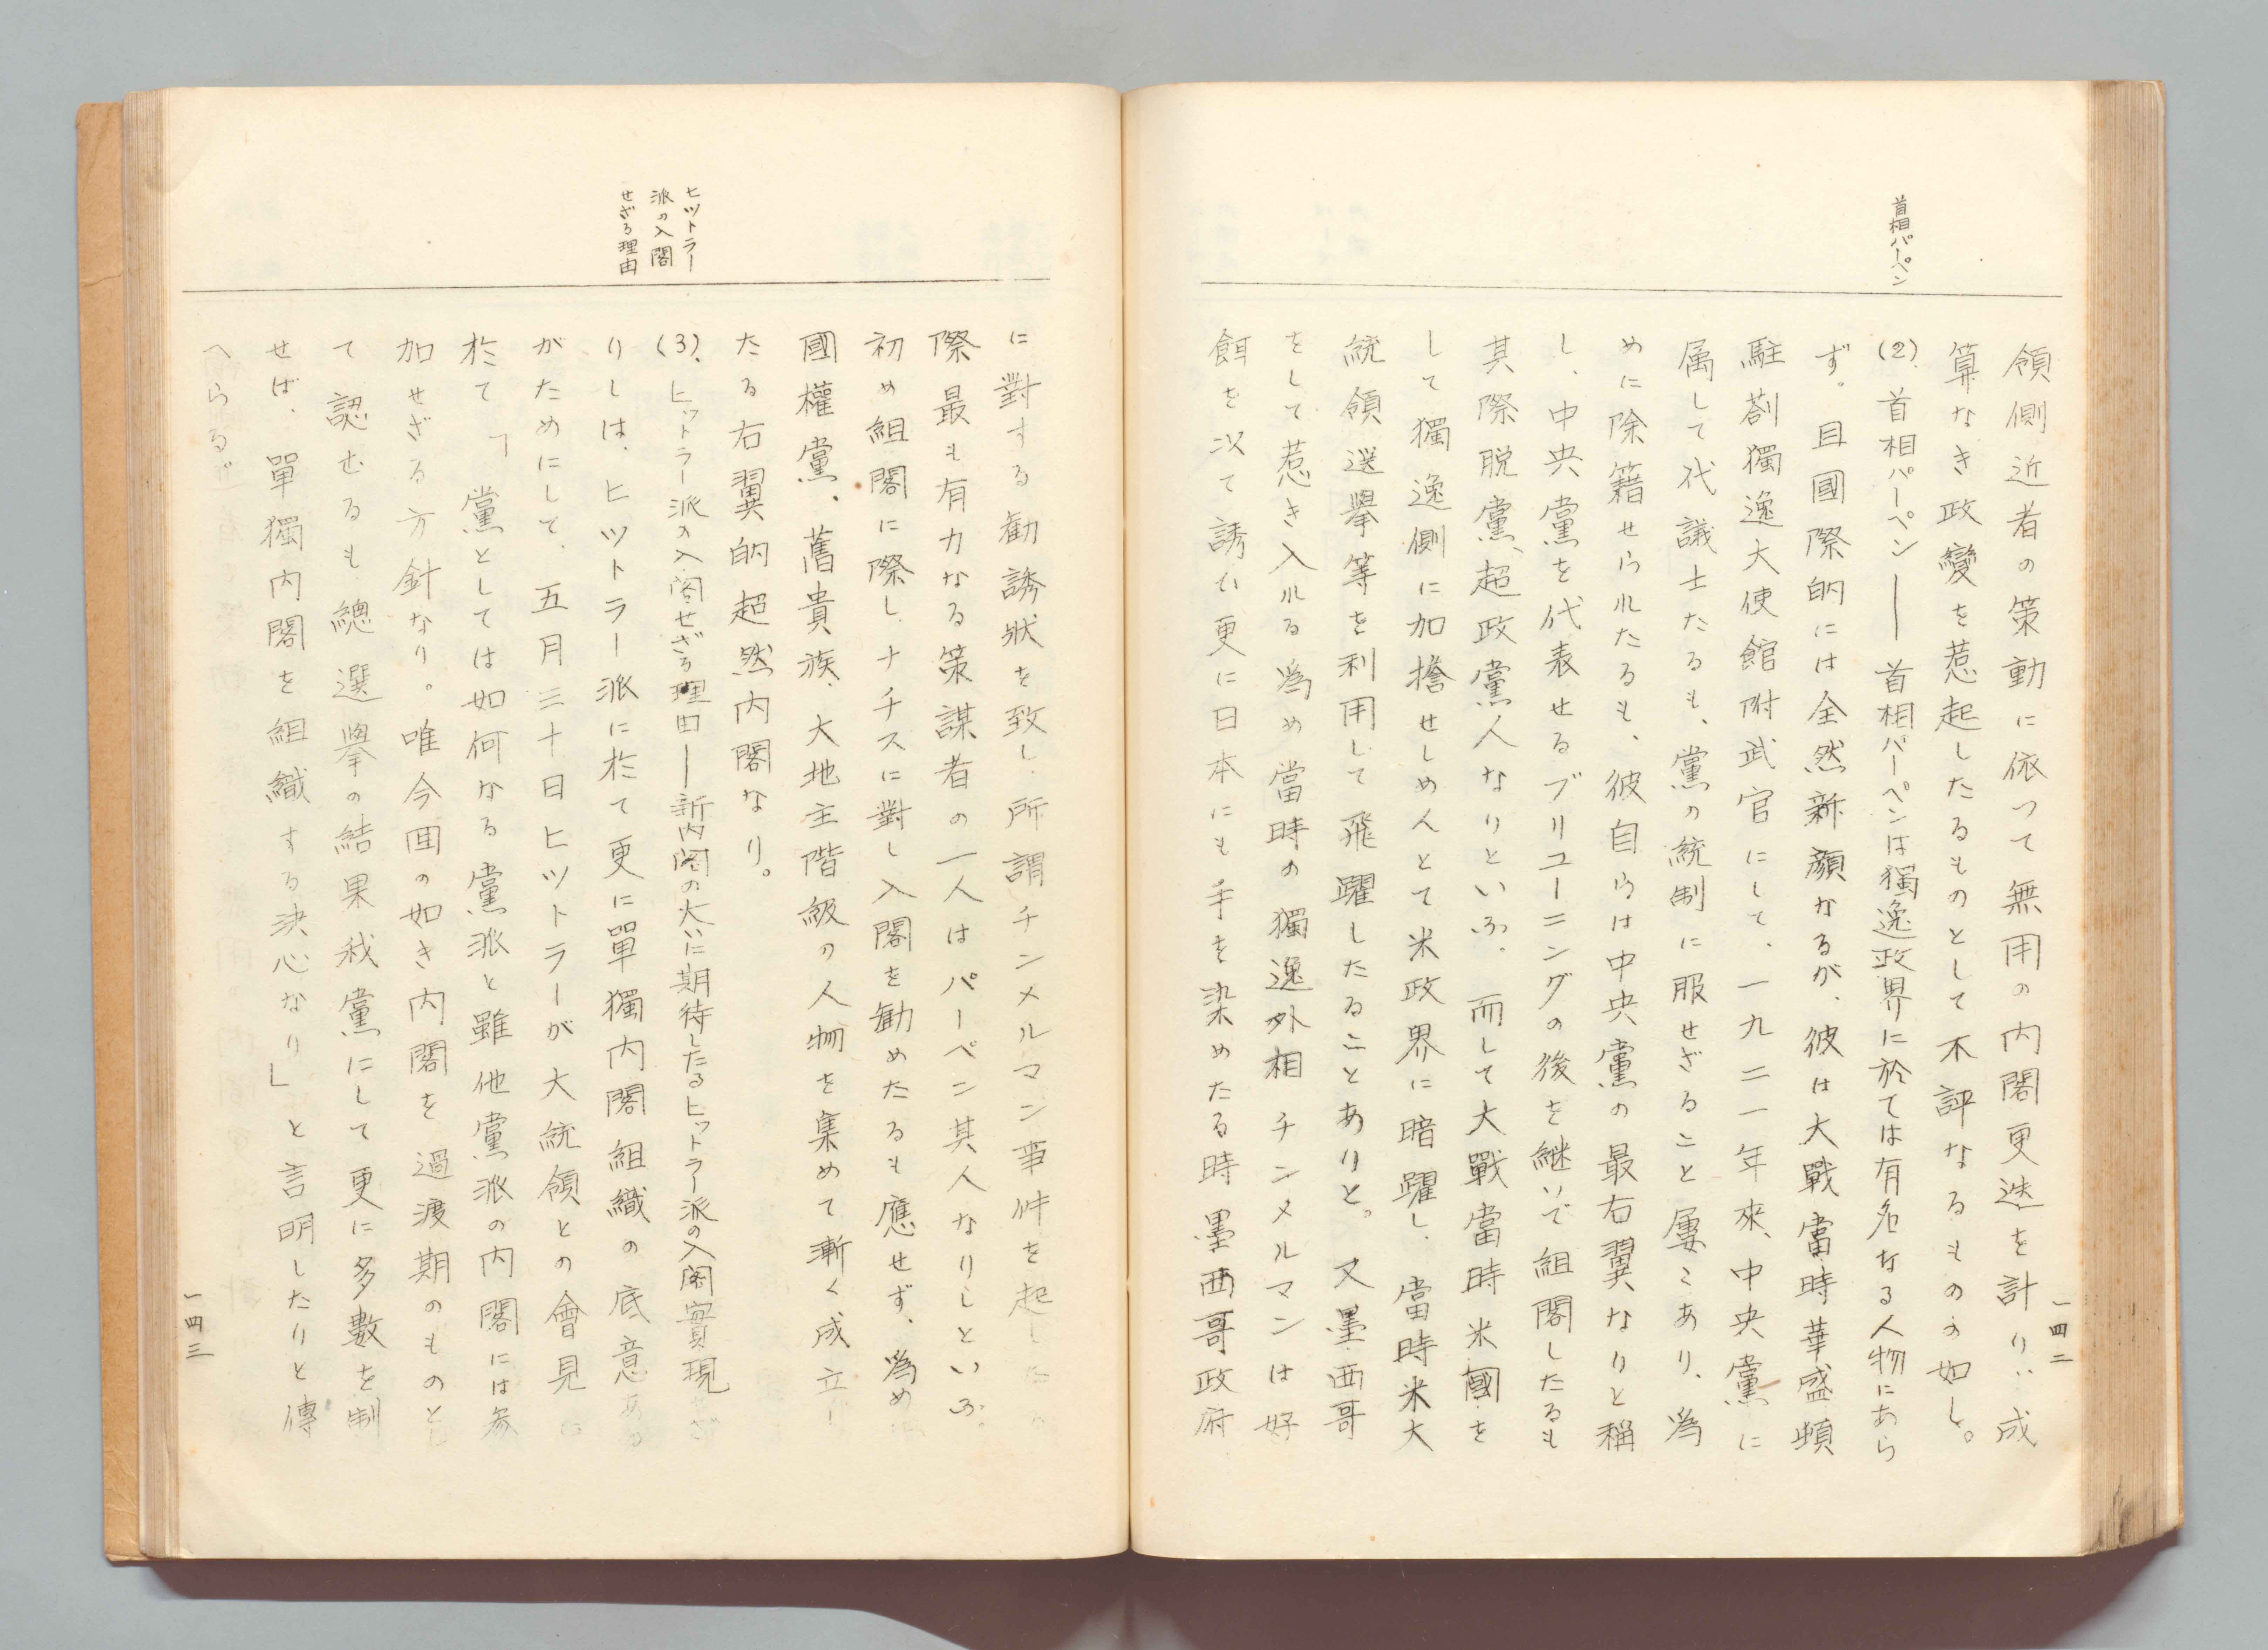 首相パーペン
領側近者の策動に依つて無用の内閣更迭を計り、成
算なき政變を惹起したるものとして不評なるものの如し。
(2)、首相パーペン――首相パーペンは獨逸政界に於ては有名なる人物にあら
ず。且國際的には全然新顏なるが、彼は大戰當時華盛頓
駐剳獨逸大使館附武官にして、一九二一年來、中央黨に
属して代議士たるも、黨の統制に服せざること屢々あり、爲
めに除籍せられたるも、彼自らは中央黨の最右翼なりと稱
し、中央黨を代表せるブリユーニングの後を継いで組閣したるも
其際脱黨、超政黨人なりといふ。而して大戰當時米國を
して獨逸側に加擔せしめんとて米政界に暗躍し、當時米大
統領選擧等を利用して飛躍したることありと。又墨西哥
をして惹き入れる爲め當時の獨逸外相チンメルマンは好
餌を以て誘ひ更に日本にも手を染めたる時墨西哥政府
一四二
ヒツトラー
派の入閣
せざる理由
に對する勸誘狀を致し、所謂チンメルマン事件を起したる
際最も有力なる策謀者の一人はパーペン其人なりしといふ。
初め組閣に際し、ナチスに對し入閣を勸めたるも應せず、爲め
國權黨、舊貴族、大地主階級の人物を集めて漸く成立し
たる右翼的超然内閣なり。
(3)、ヒットラー派の入閣せざる理由――新内閣の大いに期待したるヒットラー派の入閣實現せざ
りしは、ヒツトラー派に於て更に單獨内閣組織の底意ある
がためにして、五月三十日ヒツトラーが大統領との會見に
於て「黨としては如何なる黨派と雖他黨派の内閣には參
加せざる方針なり。唯今囬の如き内閣を過渡期のものとし
て認むるも總選擧の結果我黨にして更に多數を制
せば、單獨内閣を組織する決心なり」と言明したりと傳
へらる。
一四三